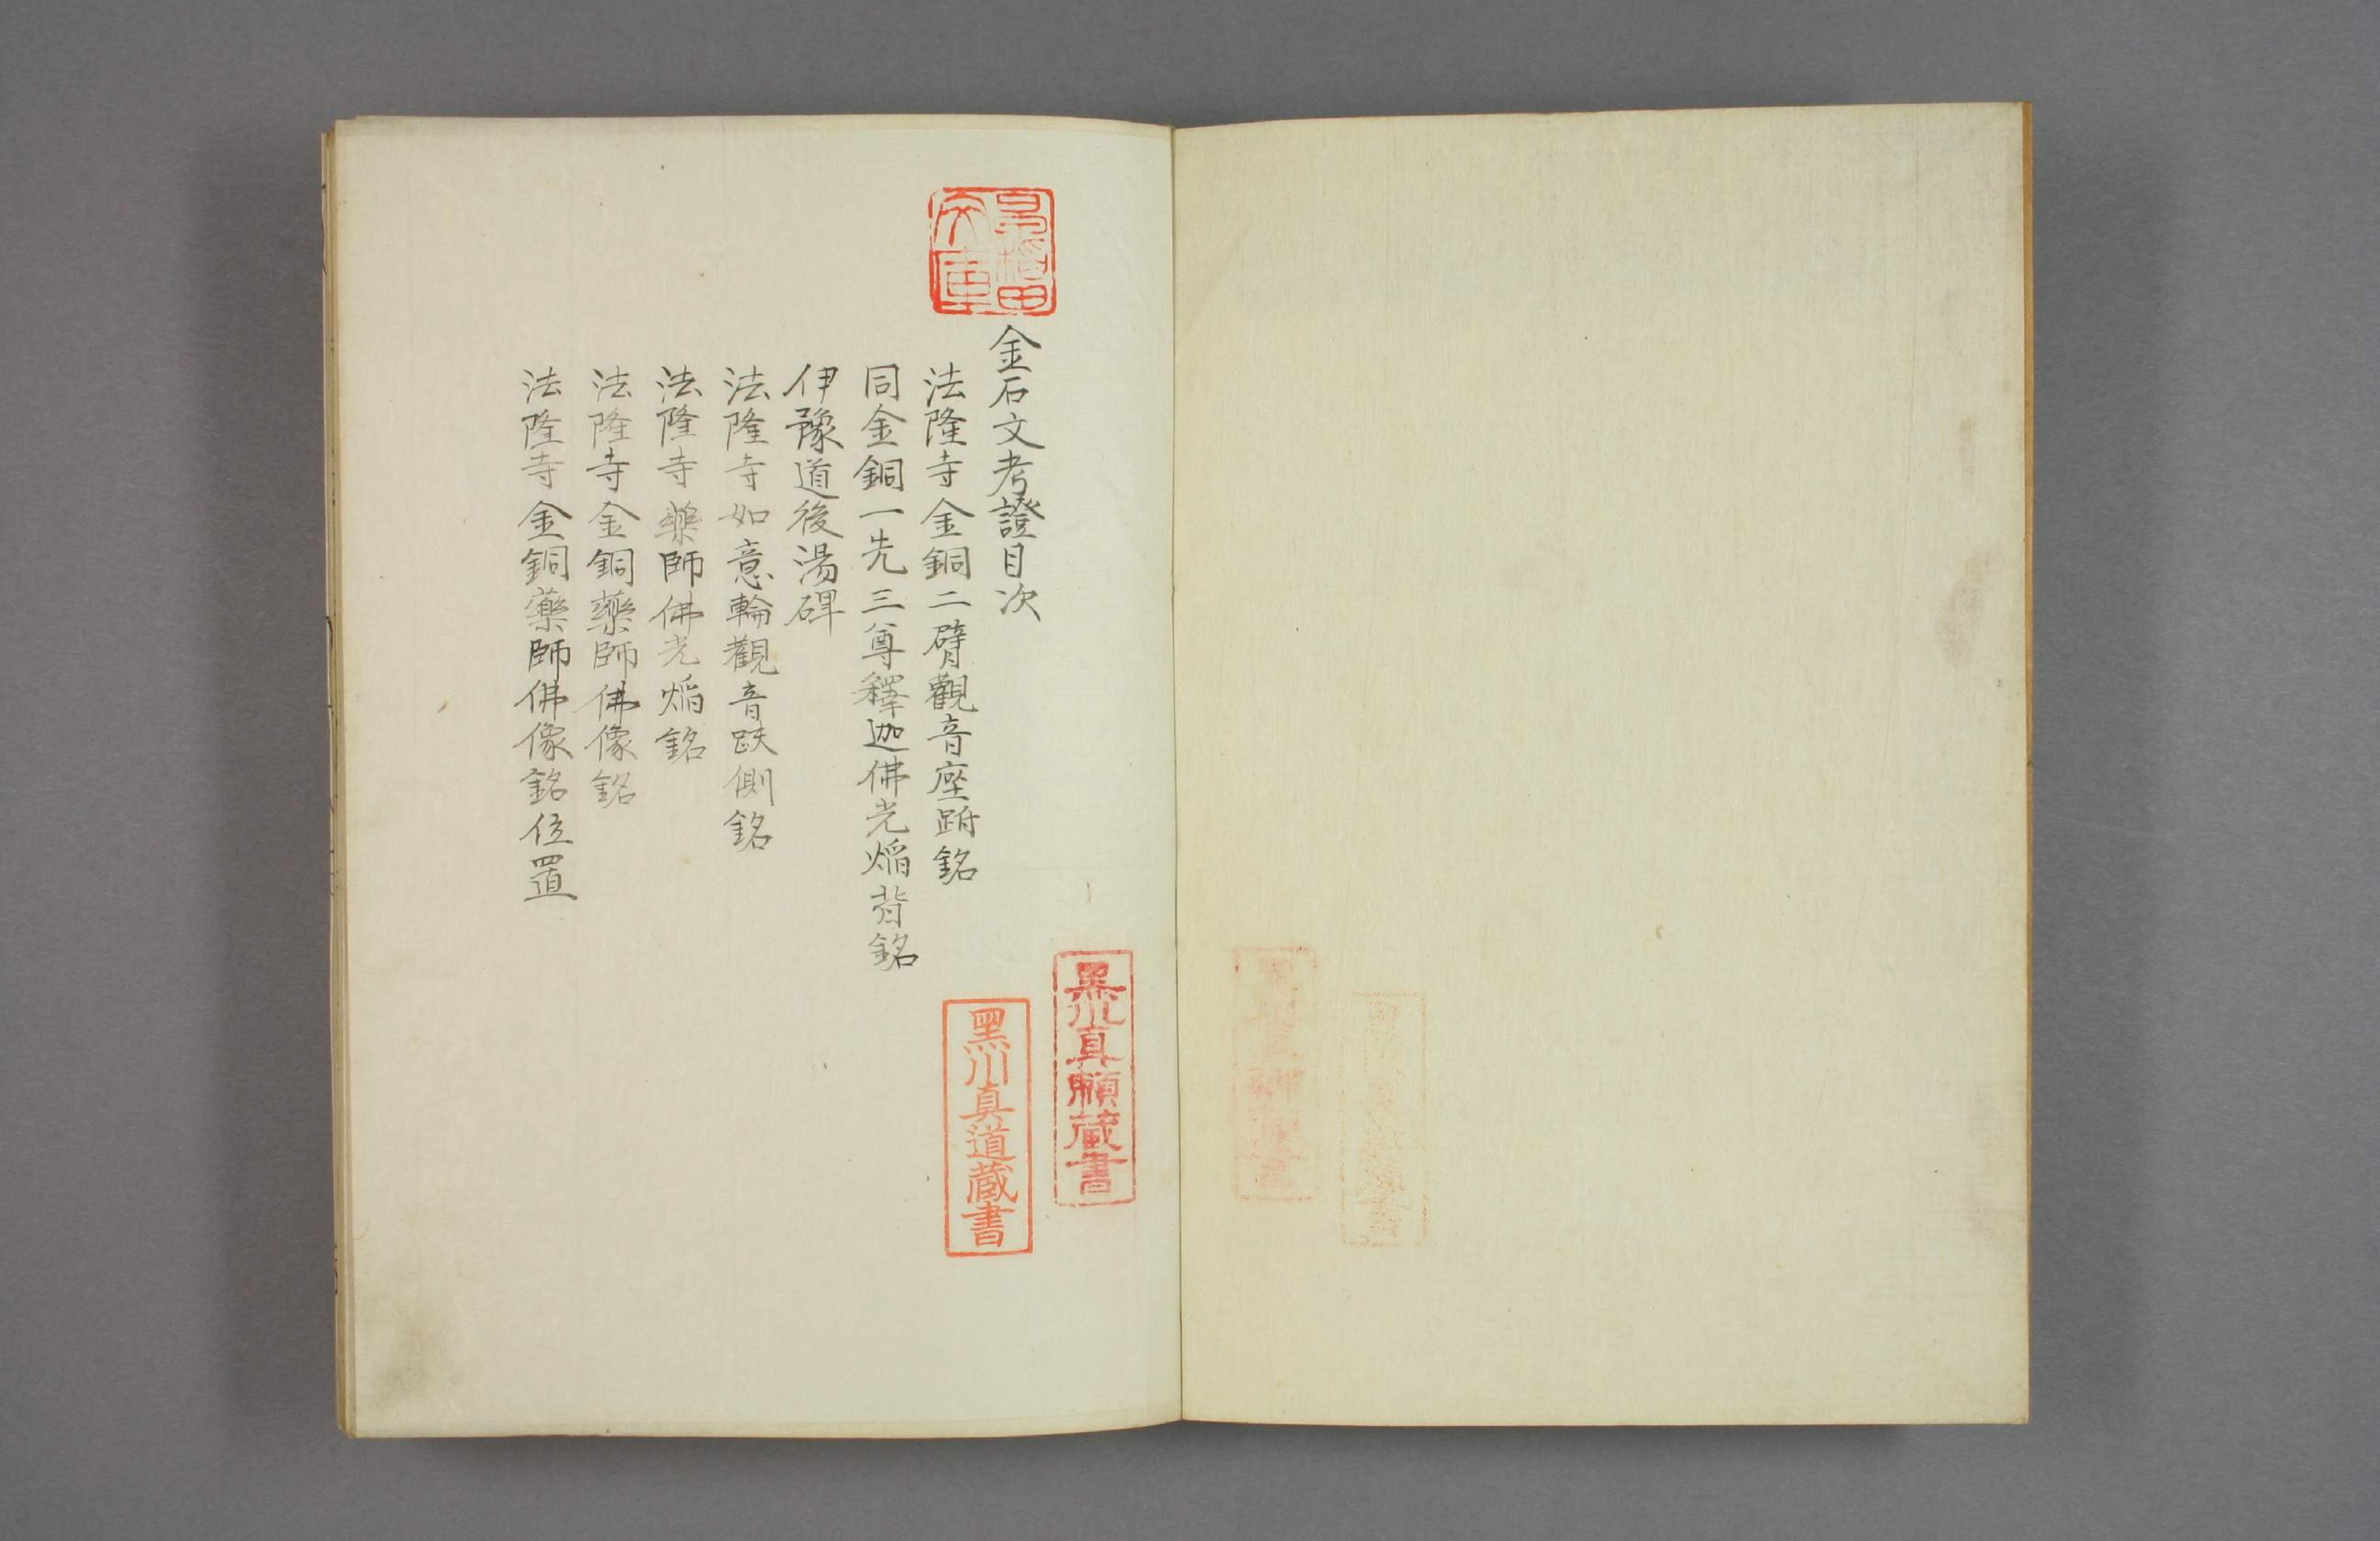 金石文考證目次
法隆寺金銅二臂觀音座跗銘
同金銅一光三尊釋迦佛光焔背銘
伊豫道後湯碑
法隆寺如意輪觀音趺側銘
法隆寺藥師佛光焔銘
法隆寺金銅藥師佛像銘
法隆寺金銅藥師佛像銘位置
早稲田文庫
黒川真頼蔵書
黒川真道蔵書